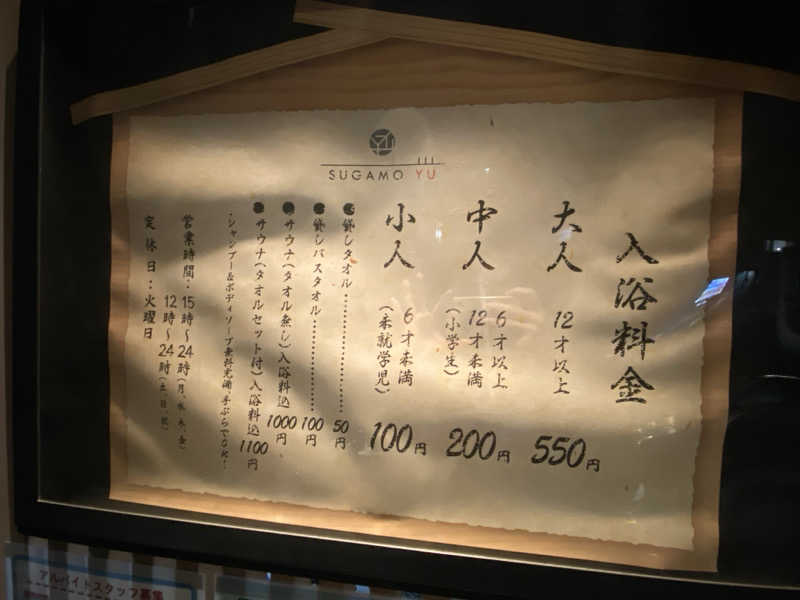 SUGAMO YU
入浴料金
大人 12才以上 550円
中人 6才以上
12才未満
(小学生) 200円
小人 6才未満
(未就学児) 100円
貸しタオル…………… 50円
貸しバスタオル…………… 100円
サウナ(タオル無し)入浴料込 1000円
サウナ(タオルセット付)入浴料込 1100円
・シャンプー&ボディソープ無料完備 手ぶらでOK!
営業時間:15時〜24時(月、水、木、金)
12時〜24時(土、日、祝)
定休日:火曜日
アルバイトスタッフ募集